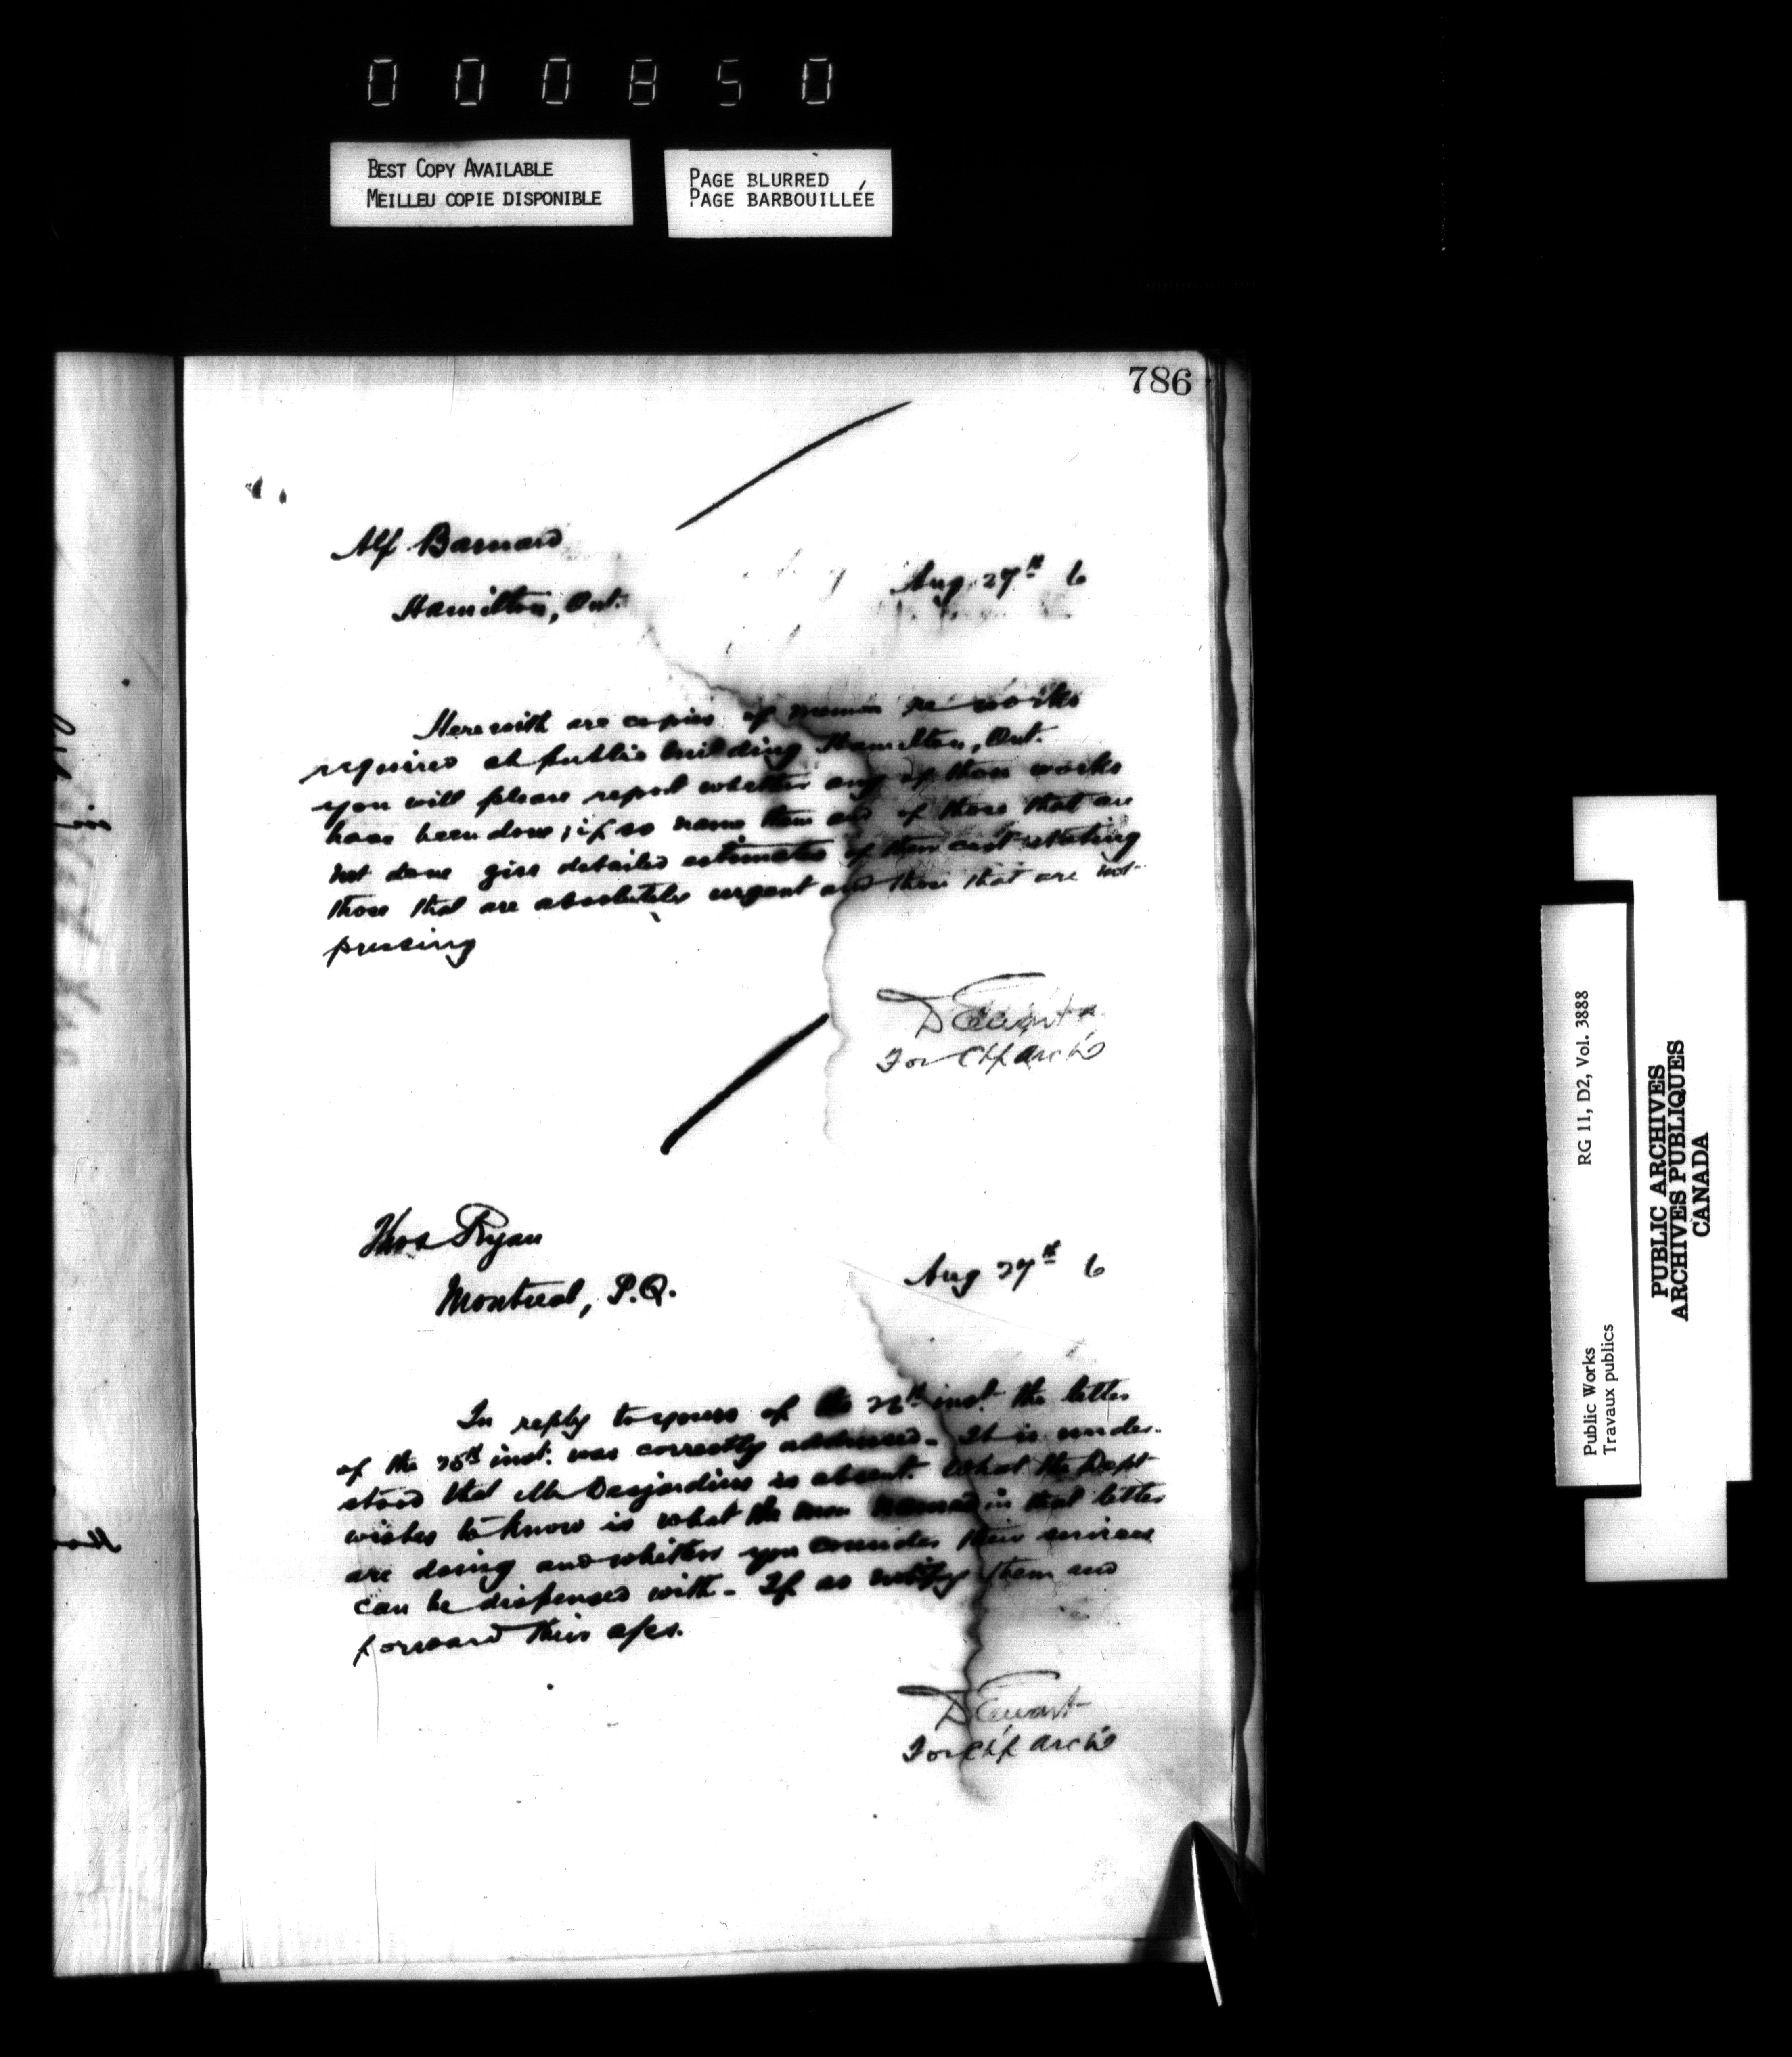 000850
BEST COPY AVAILABLE
MEILLEU COPIE DISPONIBLE
PAGE BLURRED
PAGE BARBOUILLÉE
786
Alf. Barnard
Hamilton, Ont.
Aug. 27th 6
Herewith are copies of memos re works
required at public building Hamilton, Ont.
you will please report whether any of these works
have been done; if so name them and of those that are
not done give detailed estimates of their cost stating
those that are absolutely urgent and those that are not
pressing
D Ewart
For Chf Arch't
Thos Ryan
Montreal, P.Q.
Aug 27th 6
In reply to yours of the 26th inst. the letter
of the 25th inst. was correctly addressed - It is under-
stood that Mr Desjardins is absent. What the Dept
wishes to know is what the men named in that letter
are doing and whether you consider their services
can be dispensed with - If so notify them and
forward their a/cs.
D Ewart
For Chf Arch't
Public Works
Travaux publics
RG 11, D2, Vol. 3888
PUBLIC ARCHIVES
ARCHIVES PUBLIQUES
CANADA